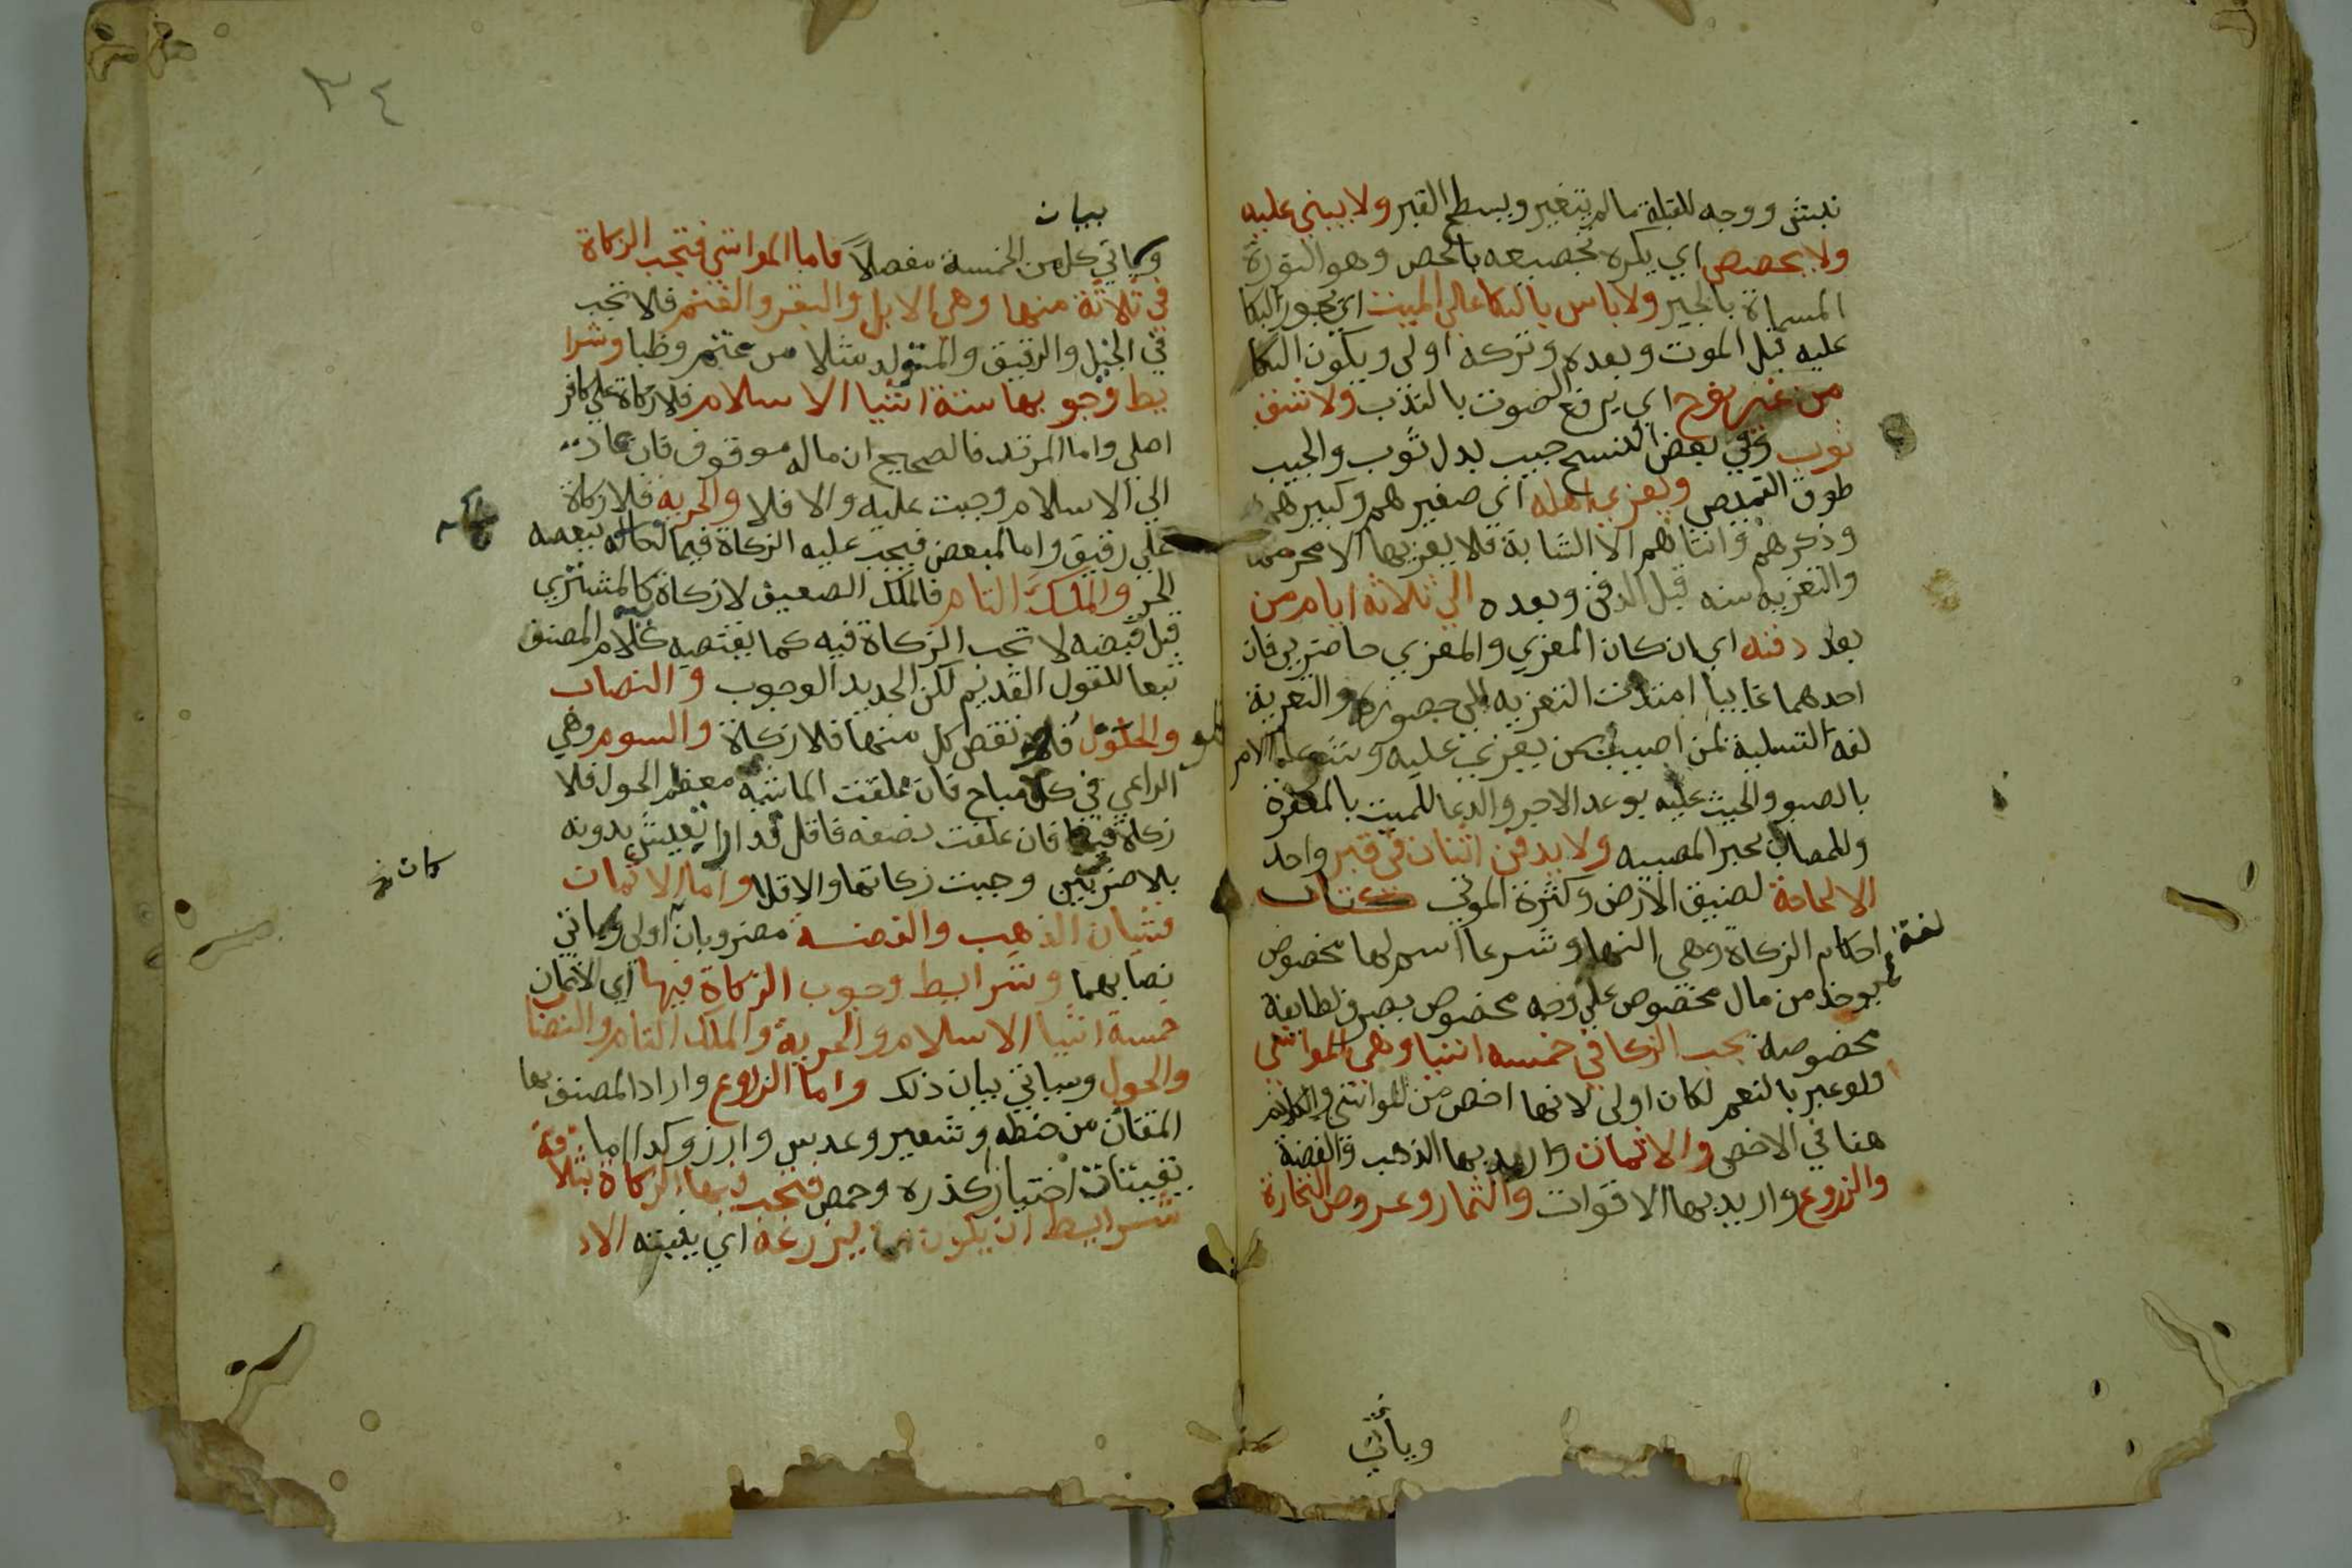 نبش ووجه للقبلة ما لم يتغير ويسطح القبر ولا يبني عليه
ولا يجصص اي يكره تجصيصه بالجص وهو النورة
المسماة بالجير ولا باس بالبكا علي الميت اي يجوز البكا
عليه قبل الموت وبعده وتركه اولي ويكون البكا
من غير نوح اي يرفع الصوت بالندب ولا شق
ثوب وفي بعض النسخ جيب بدل ثوب والجيب
طوق القميص ويعزي اهله اي صغيرهم وكبيرهم
وذكرهم وانثاهم الا الشابة فلا يعزيها الا محرمها
والتعزيه سنه قبل الدفن وبعده الي ثلاثه ايام من
بعد دفنه اي ان كان المعزي والمعزي حاضرين فان
احدهما غايبا امتدت التعزيه الي حضوره والتعزية
لغة التسلية لمن اصيب بمن يعز عليه وشرعا الامر
بالصبر والحث عليه بوعد الاجر والدعا للميت بالمغفرة
وللمصاب بجبر المصيبه ولا يدفن اثنان في قبر واحد
الا لحاجة لضيق الارض وكثرة الموتي كتاب
احكام الزكاة وهي لغة النما وشرعا اسم لما مخصوص
يوخذ من مال مخصوص علي وجه مخصوص يصرف لطايفة
مخصوصة تجب الزكا في خمسه اشيا وهي المواشي
ولو عبر بالنعم لكان اولي لانها اخص من المواشي والكلام
هنا في الاخص والاثمان واريد بها الذهب والفضة
والزروع واريد بها الاقوات والثمار وعروض التجارة
وياتي
٣٤
بيان
وياتي كل من الخمسة مفصلاً فاما المواشي فتجب الزكاة
في ثلاثة منها وهي الابل والبقر والغنم فلا تجب
في الخيل والرقيق والمتولد مثلا من غنم وظبا وشرا
يط وجوبها ستة اشيا الاسلام فلا زكاة علي كافر
اصلي واما المرتد فالصحيح ان ماله موقوف فان عاد
الي الاسلام وجبت عليه والا فلا والحريه فلا زكاة
علي رقيق واما المبعض فيجب عليه الزكاة فيما ملكه ببعضه
الحر والملك التام فالملك الضعيف لا زكاة فيه كالمشتري
قبل قبضه لا تجب الزكاة فيه كما يقتضيه كلام المصنف
تبعا للقول القديم لكن الجديد الوجوب والنصاب
والحول فلو نقص كل منهما فلا زكاة والسوم وهي
الراعي في كلا مباح فان علفت الماشية معظم الحول فلا
زكاة فيها فان علفت نصفه فاقل قدرا تعيش بدونه
كان
بلا ضرر بين وجبت زكاتها والا فلا واما الاثمان
فشيان الذهب والفضة مضروبان اولي وياتي
نصابهما وشرايط وجوب الزكاة فيها اي الاثمان
خمسة اشيا الاسلام والحرية والملك التام والنصا
والحول وسياتي بيان ذلك واما الزروع واراد المصنف بها
المقتات من حنطه وشعير وعدس وارز وكدا ما
يقتات اختيارا كذره وحمص فتجب فيها الزكاة بثلا ثة
شرايط ان يكون مما يزرعه اي ينبته الاد